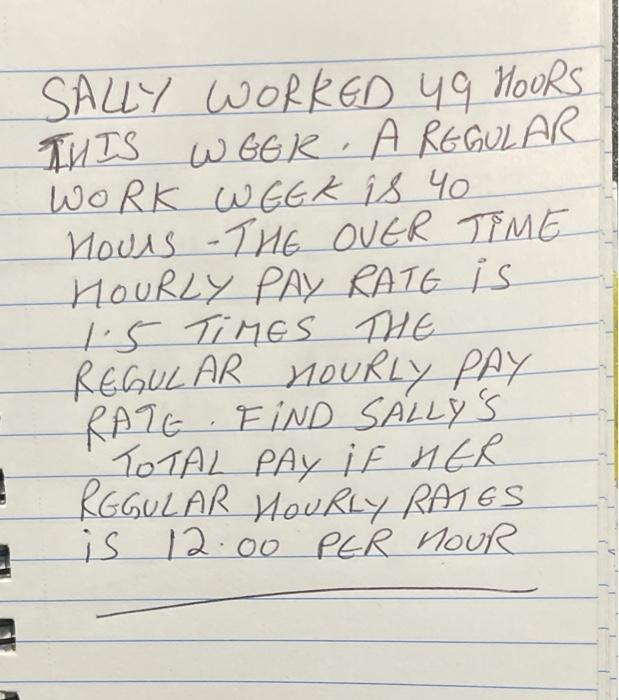 SALLY WORKED 49 HOORS
THIS WEEK. A REGULAR
WORK WEEK iS 40
HOURS - THE OVER TIME
HOURLY PAY RATE iS
1.5 TIMES THE
REGULAR HOURLY PAY
RATE. FIND SALLY'S
TOTAL PAY iF HER
REGULAR HOURLY RATES
iS 12.00 PER HOUR